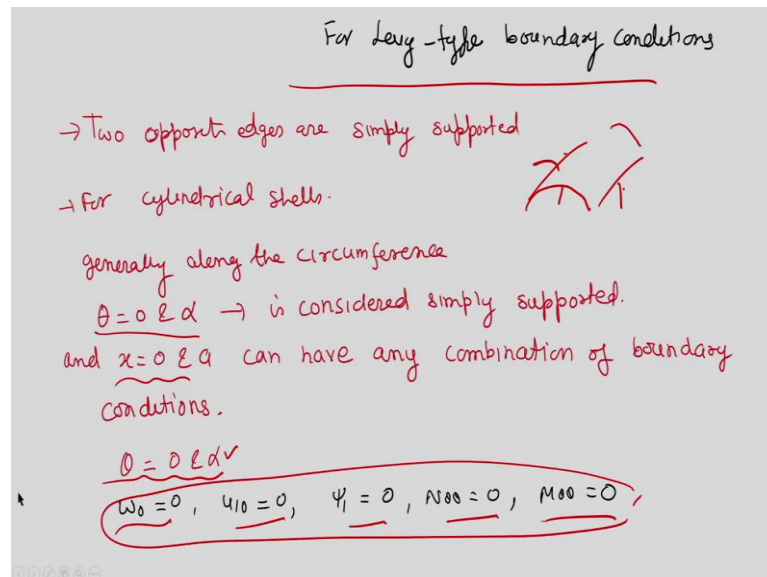 For Levy-type boundary conditions
→ Two opposite edges are simply supported
→ For cylindrical shells.
generally along the circumference
θ = 0 & α → is considered simply supported.
and x = 0 & a can have any combination of boundary
conditions.
θ = 0 & α ✓
w₀ = 0, u₁₀ = 0, ψ₁ = 0, Nθθ = 0, Mθθ = 0,